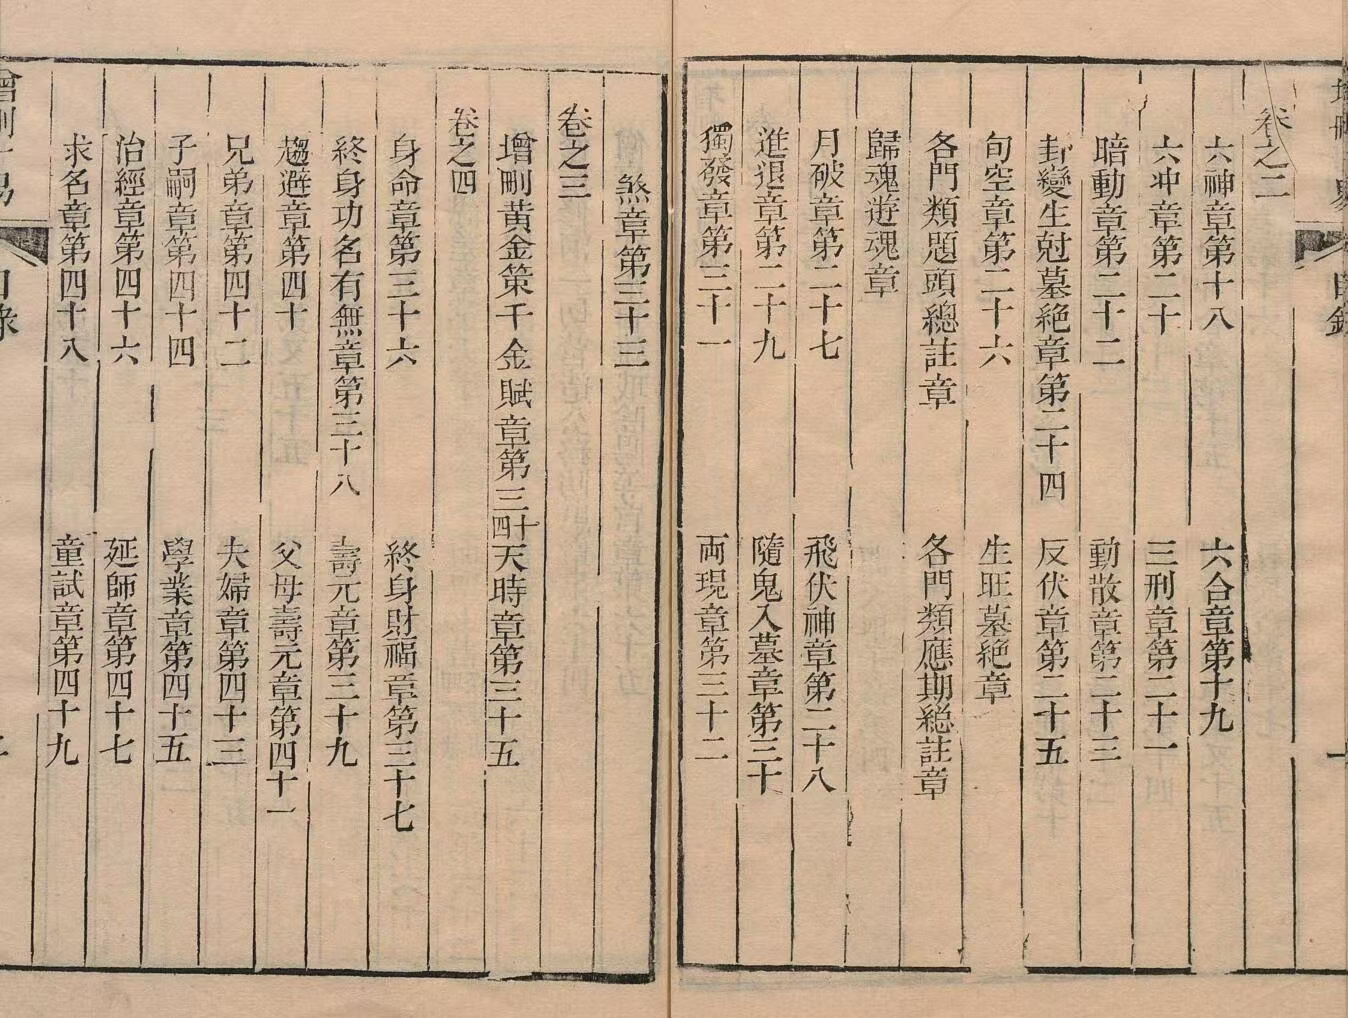 卷之二
六神章第十八 六合章第十九
六冲章第二十 三刑章第二十一
暗動章第二十二 動散章第二十三
卦變生尅墓絶章第二十四 反伏章第二十五
旬空章第二十六 生旺墓絶章
各門類題頭總註章 各門類應期総註章
歸魂遊魂章
月破章第二十七 飛伏神章第二十八
進退章第二十九 隨鬼入墓章第三十
獨發章第三十一 両現章第三十二
煞章第三十三
卷之三
增刪黃金策千金賦章第三十四 天時章第三十五
卷之四
身命章第三十六 終身財福章第三十七
終身功名有無章第三十八 壽元章第三十九
趨避章第四十 父母壽元章第四十一
兄弟章第四十二 夫婦章第四十三
子嗣章第四十四 學業章第四十五
治經章第四十六 延師章第四十七
求名章第四十八 童試章第四十九
增刪卜易 目錄